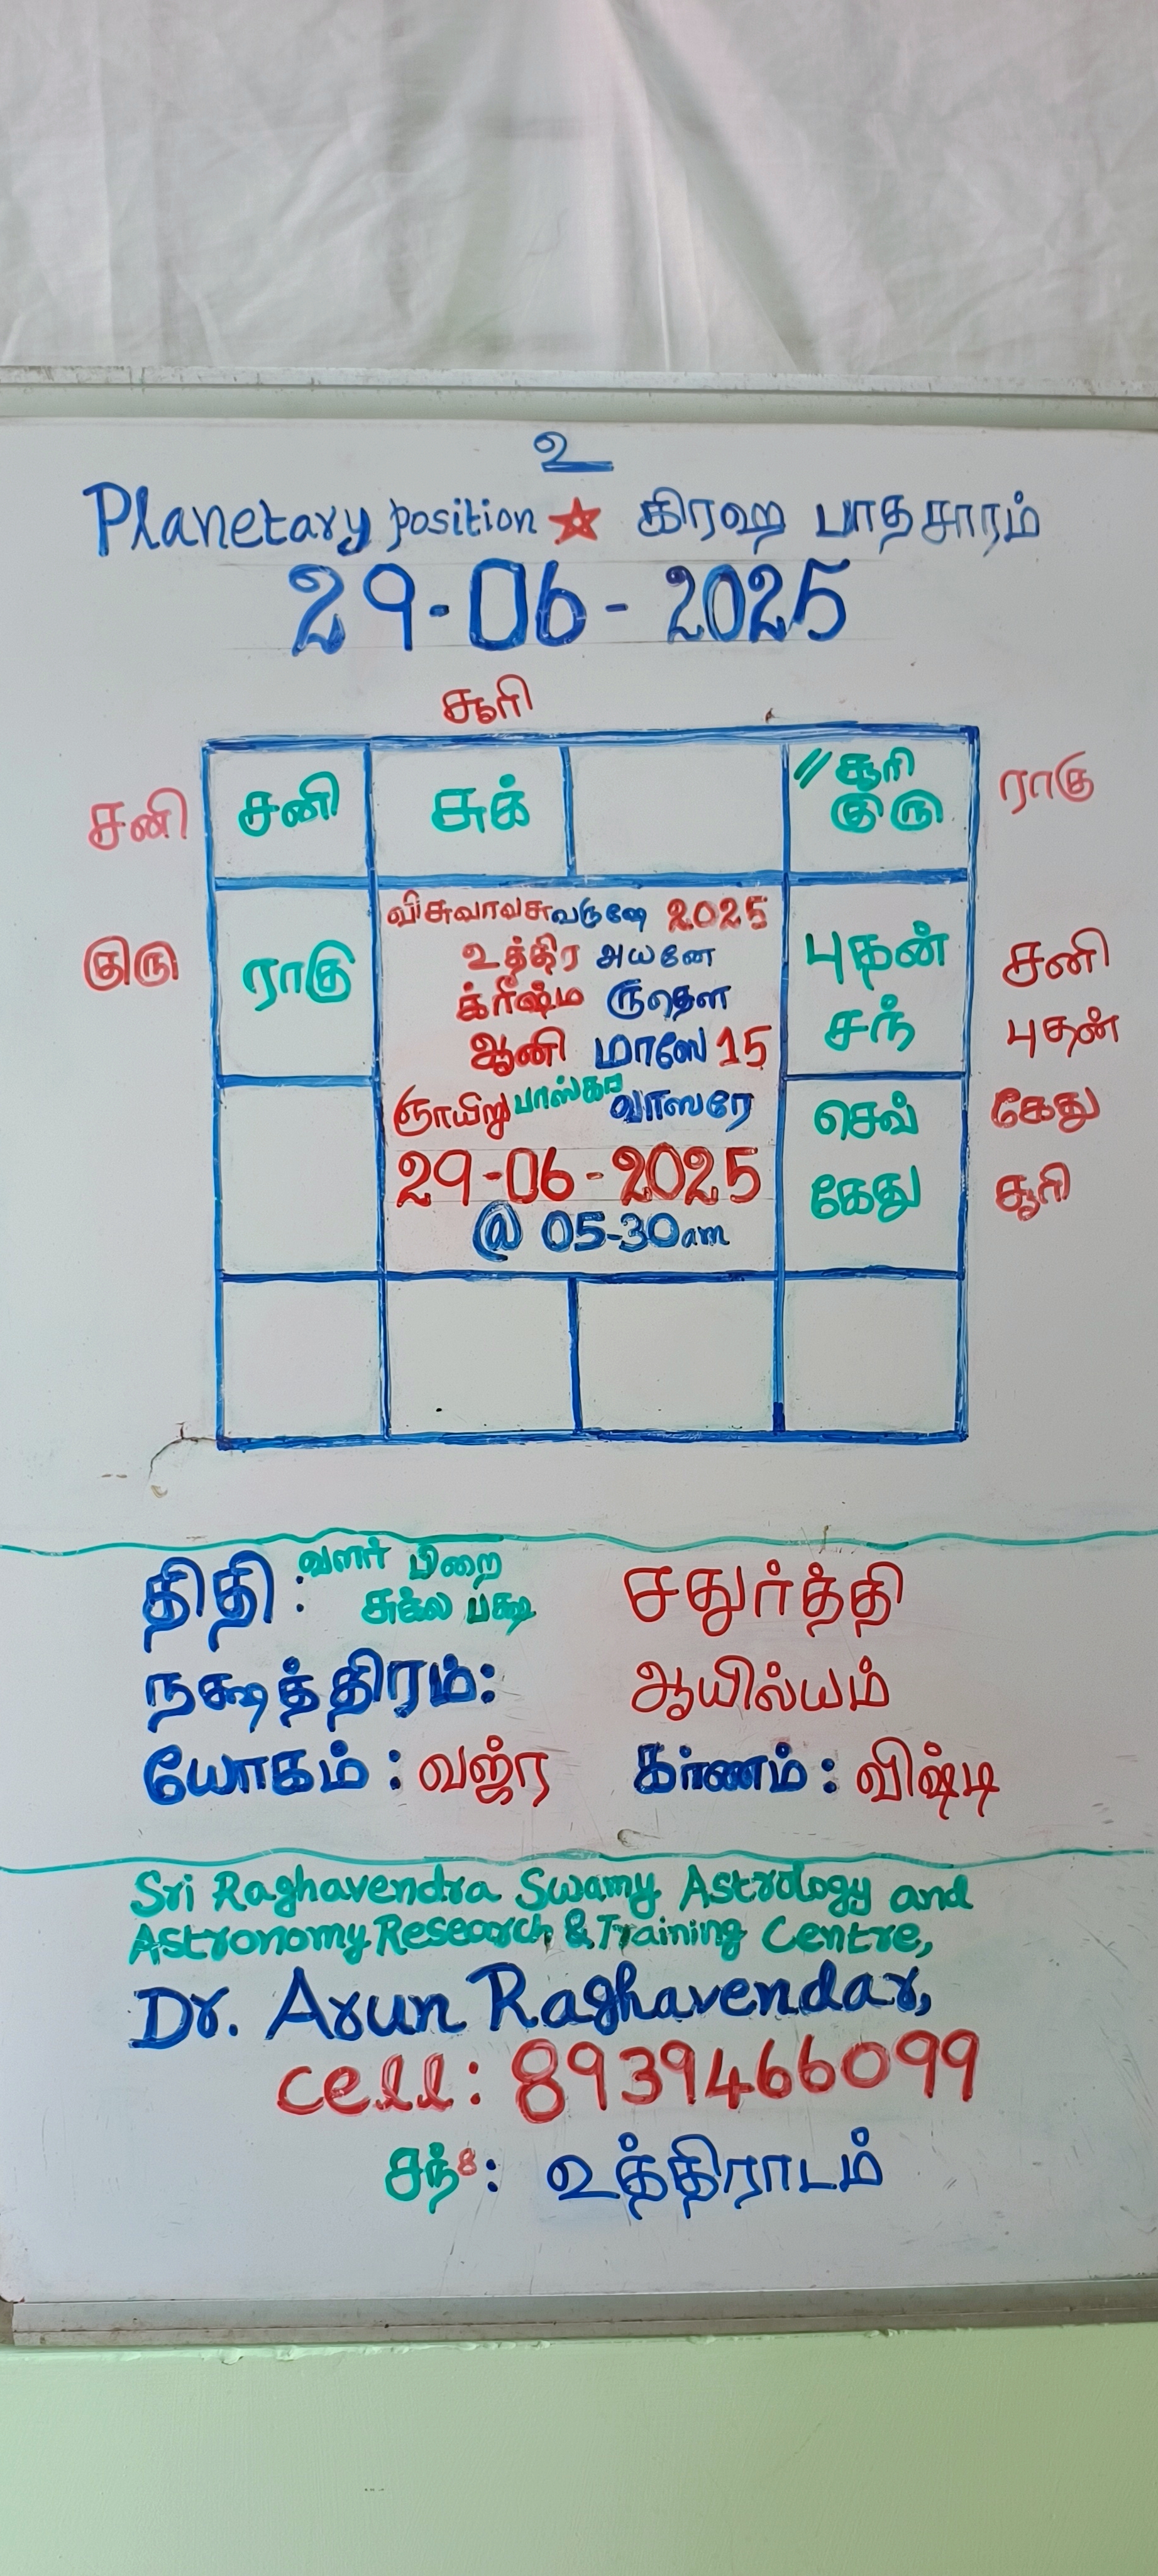 உ
Planetary position ★ கிரஹ பாதசாரம்
29-06-2025
சூரி
சனி சனி சுக் // சூரி ராகு
குரு
குரு ராகு புதன் சனி
சந் புதன்
செவ் கேது
கேது சூரி
விசுவாவசுவருஷே 2025
உத்திர அயனே
க்ரீஷ்ம ருதௌ
ஆனி மாஸே 15
ஞாயிறு பாஸ்கர வாஸரே
29-06-2025
@ 05-30am
திதி: வளர் பிறை சுக்ல பக்ஷ சதுர்த்தி
நக்ஷத்திரம்: ஆயில்யம்
யோகம்: வஜ்ர கர்ணம்: விஷ்டி
Sri Raghavendra Swamy Astrology and
Astronomy Research & Training Centre,
Dr. Arun Raghavendar,
cell: 8939466099
சந்8: உத்திராடம்